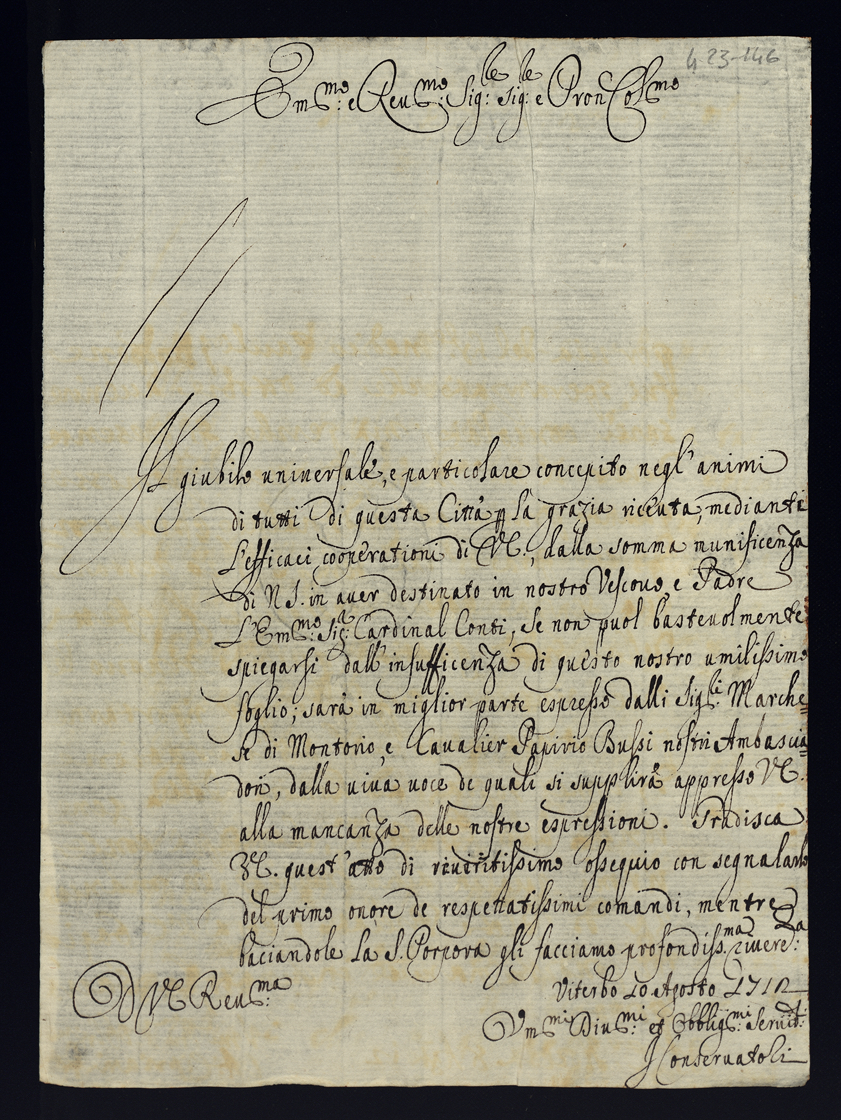 423-146
Em.mo e Reu.mo Sig:le Sig:le e Pron Col.mo
Il giubilo uniuersale, e particolare concepito negl'animi
di tutti di questa Città p la grazia riceuta, mediante
L'efficaci cooperationi di VE., dalla somma munificenza
di N.S. in auer destinato in nostro Vescouo, e Padre
L'Em:mo Sig:r Cardinal Conti, se non puol basteuolmente
spiegarsi dall'insufficenza di questo nostro umilissimo
foglio; sarà in miglior parte espresso dalli Sig:li Marche=
se di Montorio, e Caualier Papirio Bussi nostri Ambascia=
dori, dalla uiua uoce de quali si supplirà appresso VE.
alla mancanza delle nostre espressioni. Gradisca
VE. quest'atto di riueritissimo ossequio con segnalarlo
del primo onore de respettatissimi comandi, mentre
baciandole La S. Porpora gli facciamo profondiss:ma riuere:za
D VE Reu:ma
Viterbo 20 Agosto 1712
Vm:mi Diu:mi et Obblig:mi Seruit:
I Conseruatoli